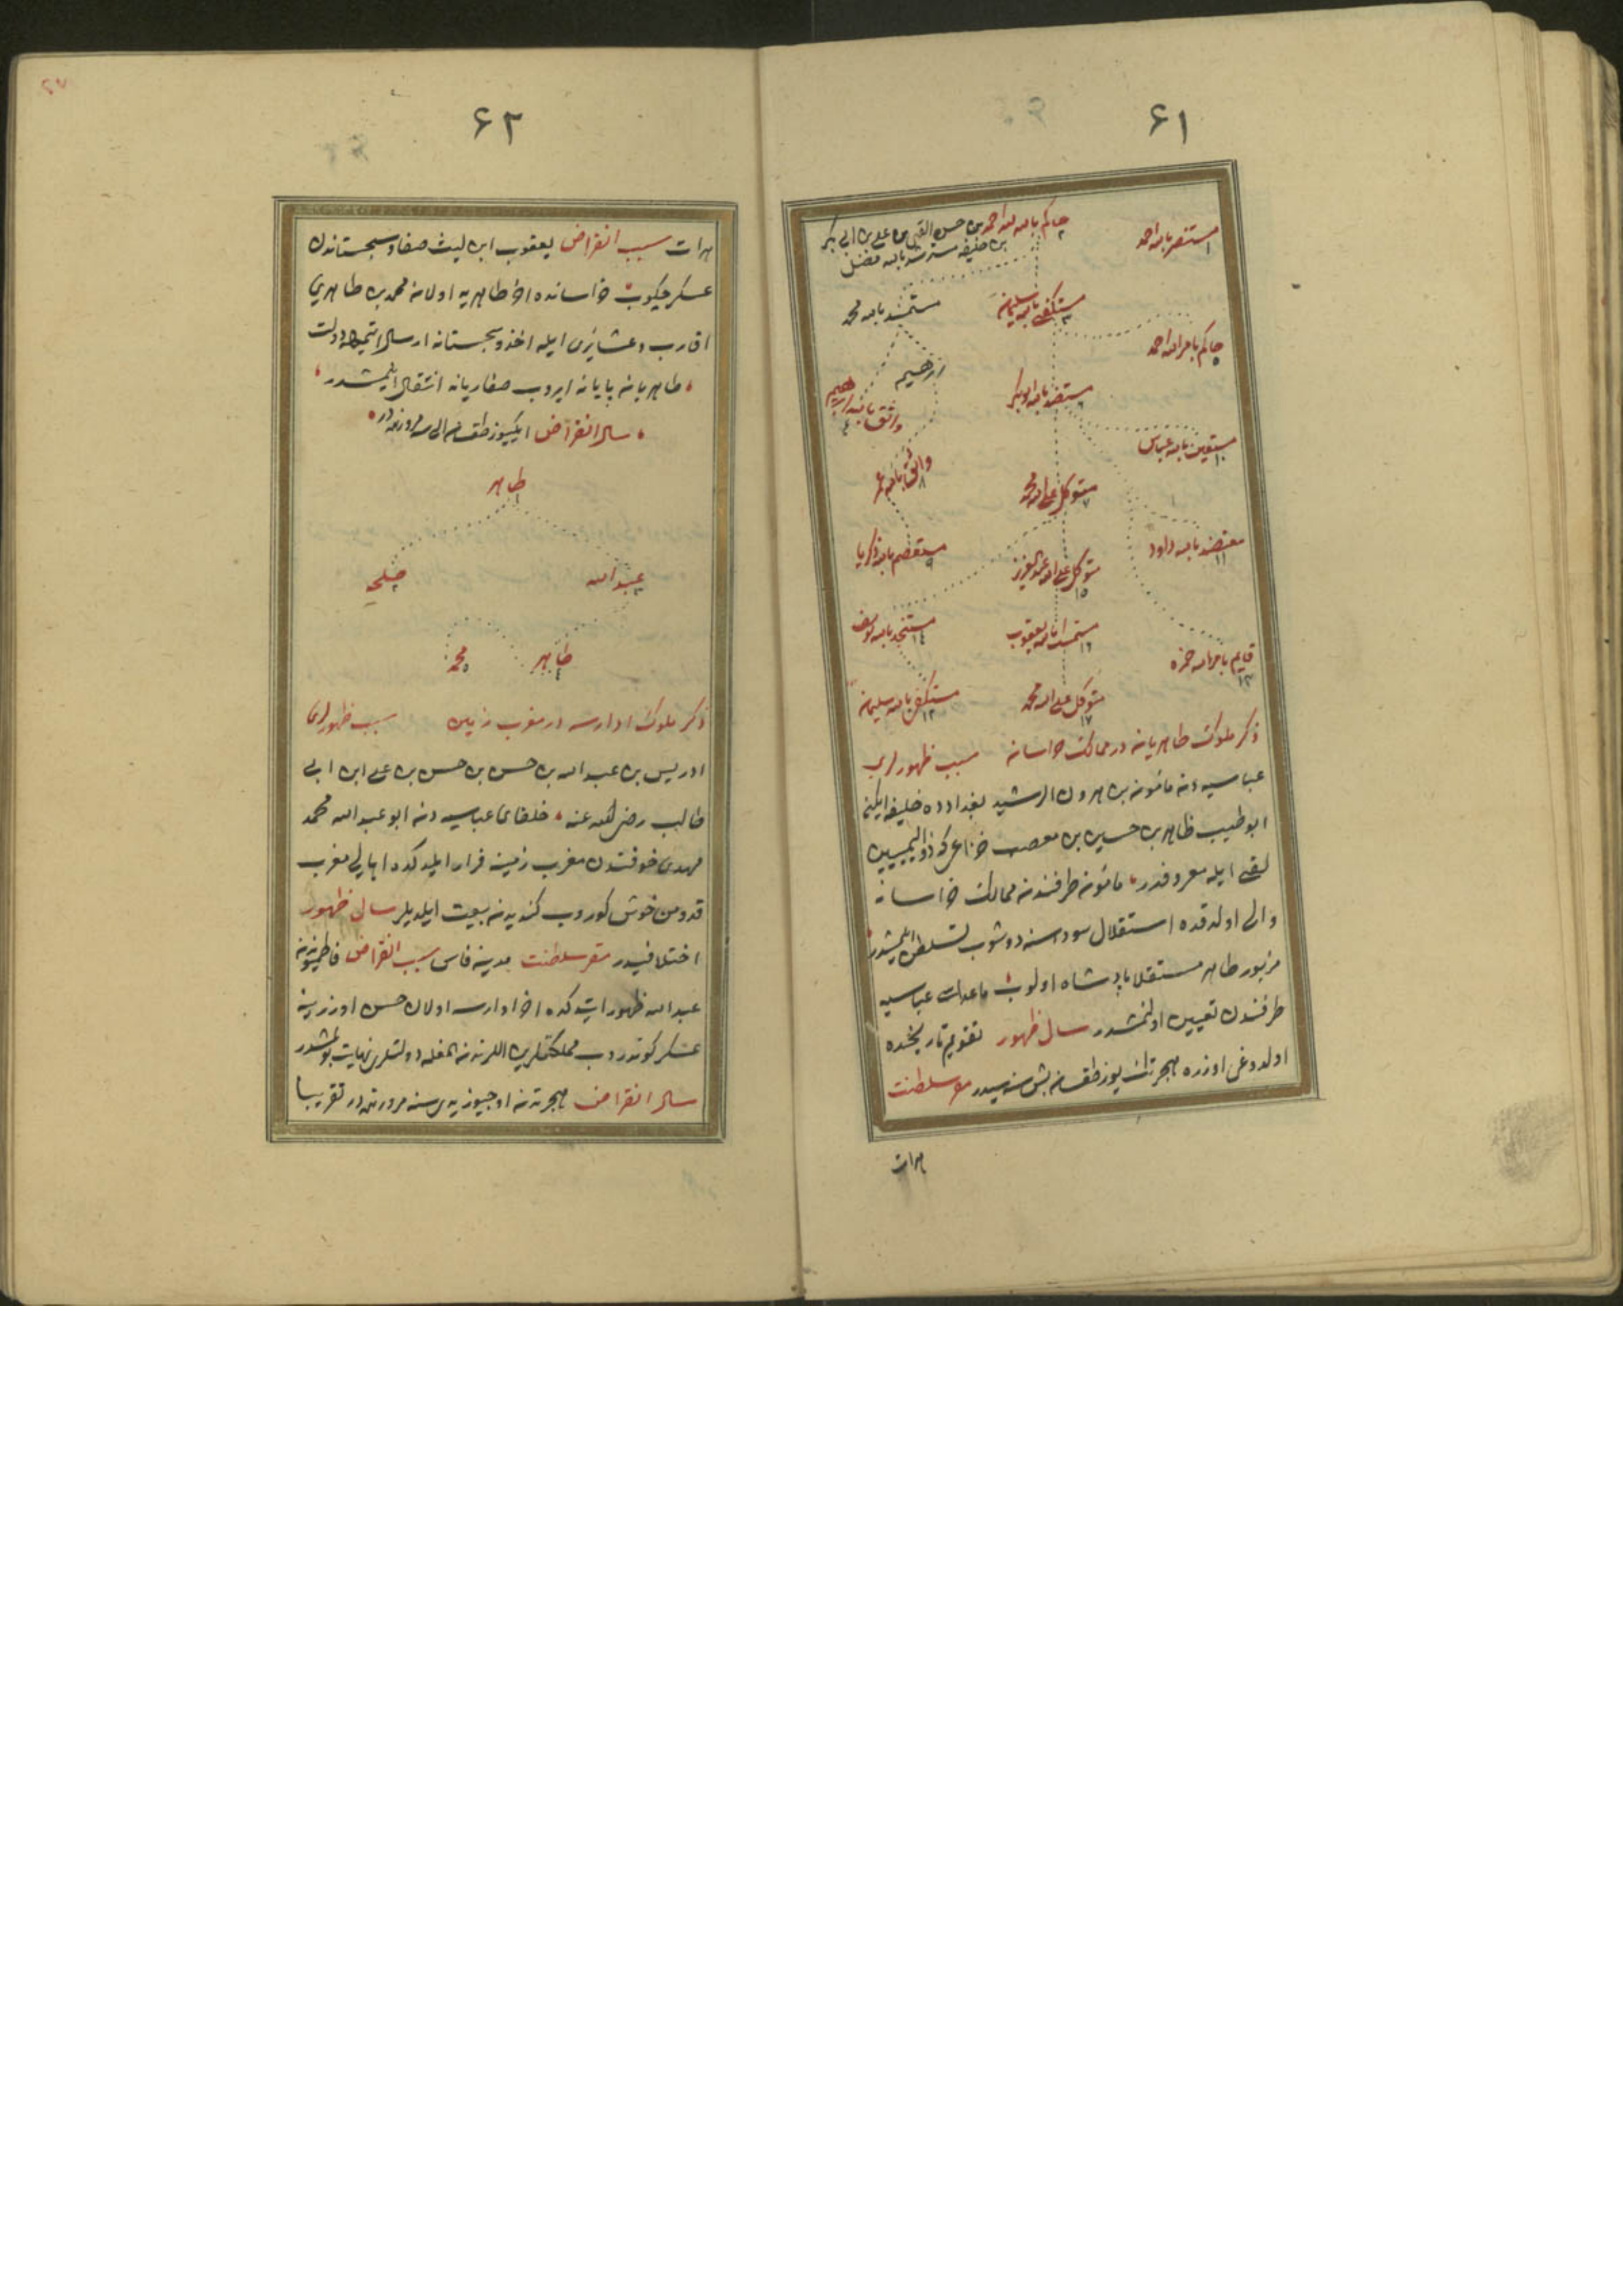 ۶۱
مستنصر بالله احمد
۱
حاكم بالله احمد بن حسن القبی بن علی بن ابی بكر
۲
بن خليفه مسترشد بالله فضل
مستكفی بالله سليمان
۳
مستمسك بالله محمد
حاكم بامر الله احمد
۵
ابرهيم
واثق بالله ابرهيم
٤
معتضد بالله ابوبكر
۶
مستعين بالله عباس
۱۰
واثق بالله عمر
۸
متوكل علی الله محمد
۷
معتضد بالله داود
۱۱
مستعصم بالله زكريا
۹
متوكل علی الله عبد العزيز
۱۵
مستنجد بالله يوسف
۱٤
مستمسك بالله يعقوب
۱۶
قايم بامر الله حمزه
۱۳
مستكفی بالله سليمان
۱۲
متوكل علی الله محمد
۱۷
ذكر ملوك طاهريان در ممالك خراسان سبب ظهورلری
عباسيه دن مأمون بن هرون الرشيد بغدادده خليفه ايكن
ابو طيب طاهر بن حسين بن معصب خزاعی كه ذو اليمينين
لقبی ايله معروفدر مأمون طرفندن ممالك خراسان
والی اولدقده استقلال سوداسنه دوشوب تسلطن ايلمشدر
مزبور طاهر مستقلا پادشاه اولوب ماعداسی عباسيه
طرفندن تعيين اولنمشدر سال ظهور تقويم تاريخنده
اولدوغی اوزره هجرتك يوز طقسان بش سنه سيدر مقر سلطنت
هرات
۶۲
هرات سبب انقراض يعقوب ابن ليث صفار سجستاندن
عسكر چكوب خراسانده آخر طاهريه اولان محمد بن طاهری
اقارب و عشايری ايله اخذ و سجستانه ارسال ايتميله دولت
طاهريان پايانه ايروب صفاريانه انتقال ايلمشدر
سال انقراض ايكيوز طقسان الی سنه مرورنده در
طاهر
۱
عبد الله
۳
طلحه
۲
طاهر
٤
محمد
۵
ذكر ملوك ادارسه در مغرب زمين سبب ظهورلری
ادريس بن عبد الله بن حسن بن حسن بن علی ابن ابی
طالب رضی الله عنه خلفای عباسيه دن ابو عبد الله محمد
مهدی خوفندن مغرب زمينه فرار ايلدكده اهالی مغرب
قدومن خوش كوروب كنديه بيعت ايلديلر سال ظهور
اختلافيدر مقر سلطنت مدينه فاس سبب انقراض فاطميوندن
عبد الله ظهور ايتدكده آخر ادارسه اولان حسن اوزرينه
عسكر كوندروب مملكتلرين اللرندن المغله دولتلری نهايت بولمشدر
سال انقراض هجرتدن اوچيوز يدی سنه مرورنده در تقريبا